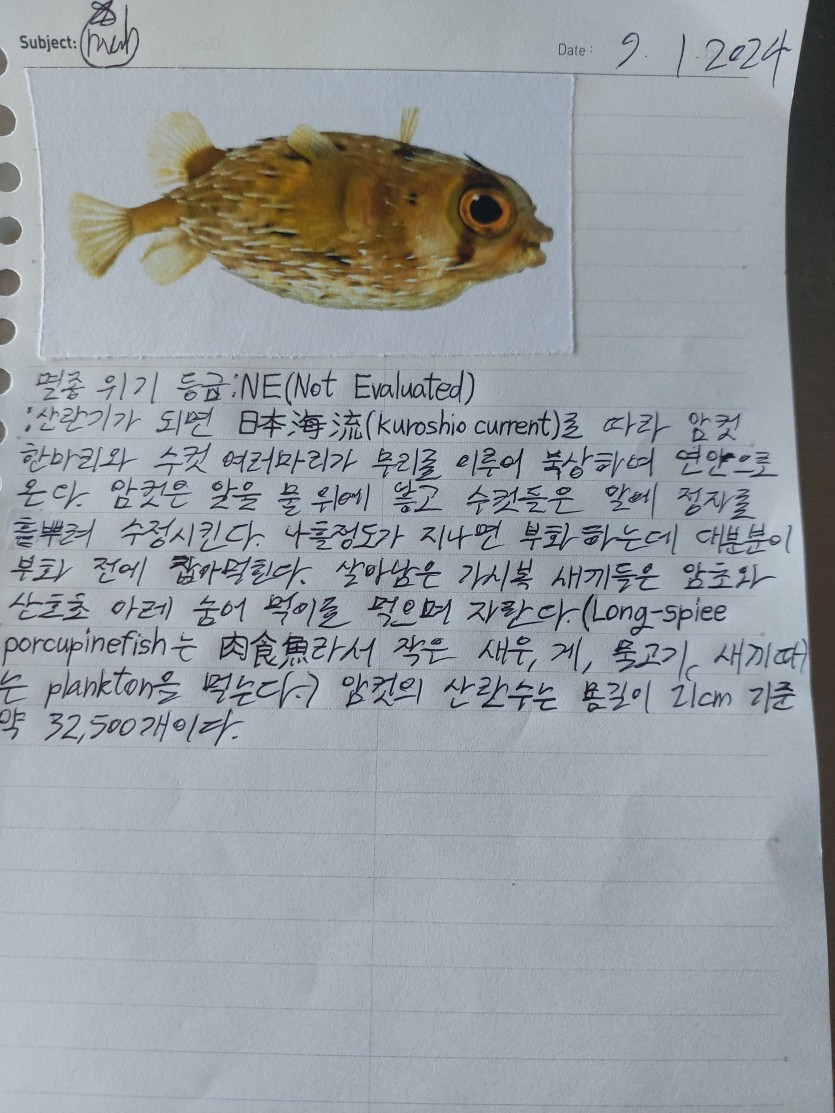 Subject:
Date : 9. 1. 2024
멸종 위기 등급:NE(Not Evaluated)
:산란기가 되면 日本海流(kuroshio current)를 따라 암컷
한마리와 수컷 여러마리가 무리를 이루어 북상하며 연안으로
온다. 암컷은 알을 물 위에 놓고 수컷들은 알에 정자를
흩뿌려 수정시킨다. 나흘정도가 지나면 부화하는데 대부분이
부화 전에 잡아먹힌다. 살아남은 가시복 새끼들은 암초와
산호초 아레 숨어 먹이를 먹으며 자란다.(Long-spiee
porcupinefish는 肉食魚라서 작은 새우, 게, 물고기, 새끼때
는 plankton을 먹는다.) 암컷의 산란수는 몸길이 21cm 기준
약 32,500개이다.